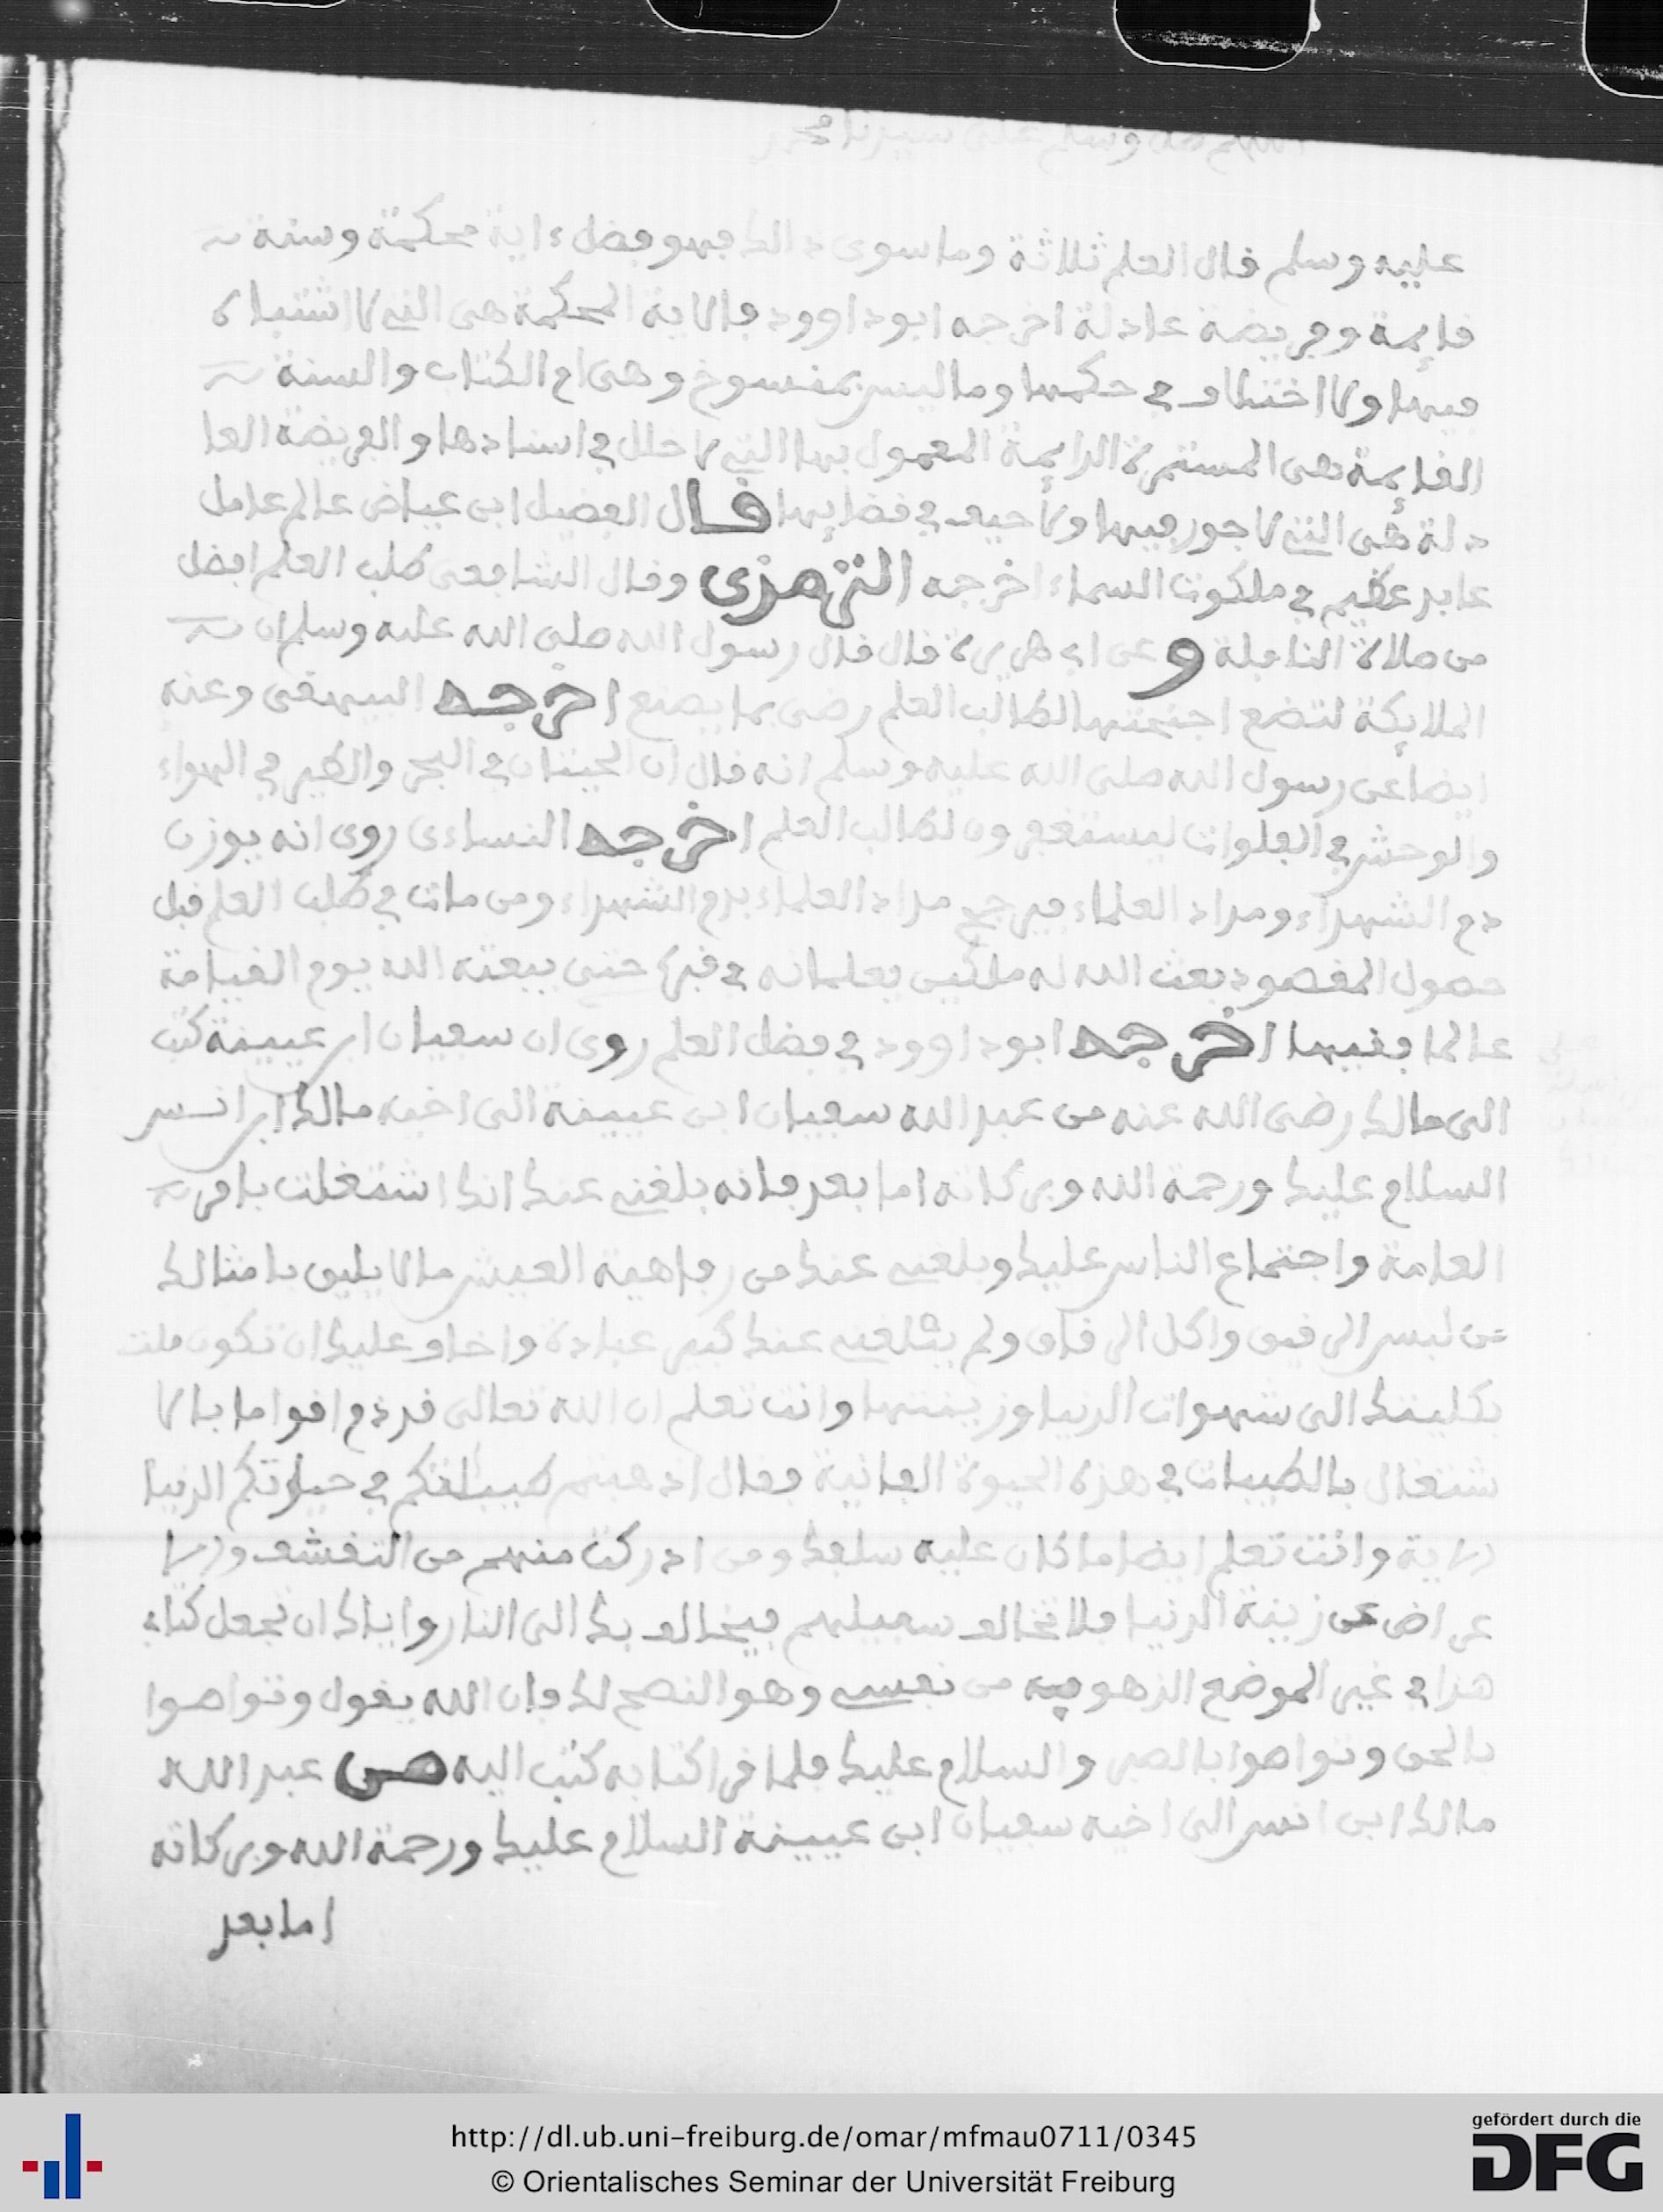 اللهم صل وسلم على سيدنا محمد
عليه وسلم قال العلم ثلاثة وما سوى ذالك فهو فضل ءاية محكمة وسنة
قايمة وفريضة عادلة اخرجه ابو داوود فالاية المحكمة هى التى لا اشتباه
فيها ولا اختلاف في حكمها وما ليس بمنسوخ وهى ام الكتاب والسنة
القايمة هى المستمرة الدايمة المعمول بها التى لا خلل في اسنادها والفريضة العا
دلة هى التى لا جور فيها ولا حيف في قضايها قال الفضيل ابن عياض عالم عامل
عابد عظيم في ملكوت السماء اخرجه الترمذى وقال الشافعى طلب العلم افضل
من صلاة النافلة وعن ابى هريرة قال قال رسول الله صلى الله عليه وسلم ان
الملايكة لتضع اجنحتها لطالب العلم رضى بما يصنع اخرجه البيهقى وعنه
ايضا عن رسول الله صلى الله عليه وسلم انه قال ان الحيتان في البحر والطير في الهواء
والوحش في الفلوات ليستغفرون لطالب العلم اخرجه النساءى روى انه يوزن
دم الشهداء ومداد العلماء فيرجح مداد العلماء بدم الشهداء ومن مات في طلب العلم قبل
حصول المقصود بعث الله له ملكين يعلمانه في قبره حتى يبعثه الله يوم القيامة
عالما فقيها اخرجه ابو داوود في فضل العلم روى ان سفيان ابن عيينة كتب
الى مالك رضى الله عنه من عبد الله سفيان ابن عيينة الى اخيه مالك ابن انس
السلام عليك ورحمة الله وبركاته اما بعد فانه بلغنى عنك انك اشتغلت بامر
العامة واجتماع الناس عليك وبلغنى عنك من رفاهية العيش ما لا يليق بامثالك
من لبس الرقيق واكل الرقاق ولم يبلغنى عنك كبير عبادة واخاف عليك ان تكون ملت
بكليتك الى شهوات الدنيا وزينتها وانت تعلم ان الله تعالى قد ذم اقواما بالا
شتغال بالطيبات في هذه الحيوة الفانية فقال اذهبتم طيباتكم في حياتكم الدنيا
الاية وانت تعلم ايضا ما كان عليه سلفك ومن ادركت منهم من التقشف والا
عراض عن زينة الدنيا فلا تخالف سبيلهم فيخالف بك الى النار واياك ان تجعل كتاب
هذا في غير الموضع الذ هو فيه من نفسى وهو النصح لك فان الله يقول وتواصوا
بالحق وتواصوا بالصبر والسلام عليك فلما قرا كتابه كتب اليه من عبد الله
مالك ابن انس الى اخيه سفيان ابن عيينة السلام عليك ورحمة الله وبركاته
اما بعد
http://dl.ub.uni-freiburg.de/omar/mfmau0711/0345
© Orientalisches Seminar der Universität Freiburg
gefördert durch die
DFG